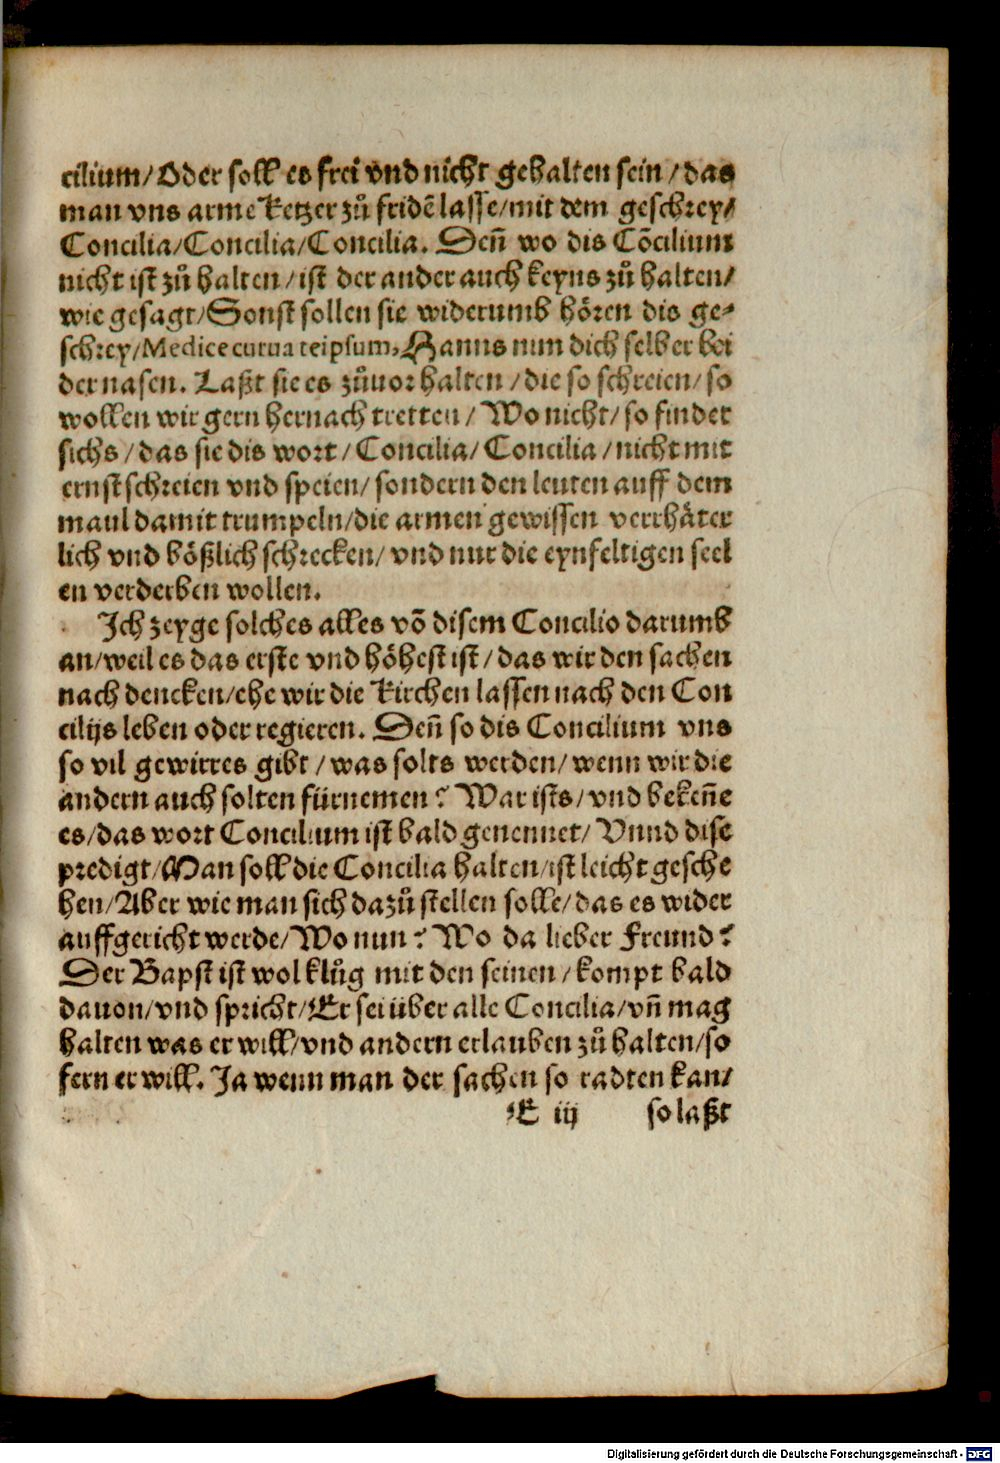 cilium/Oder soll es frei vnd nicht gehalten sein/das
man vns arme Ketzer zů fridẽ lasse/mit dem geschrey/
Concilia/Concilia/Concilia. Deñ wo dis Cõcilium
nicht ist zů halten/ist der ander auch keyns zů halten/
wie gesagt/Sonst sollen sie widerumb hören dis ge-
schrey/Medice cura teipsum, Hanns nim dich selber bei
der nasen. Laßt sie es zůuor halten/die so schreien/so
wollen wir gern hernach tretten/Wo nicht/so findet
sichs/das sie dis wort/Concilia/Concilia/nicht mit
ernst schreien vnd speien/sondern den leuten auff dem
maul damit trumpeln/die armen gewissen verrhäter
lich vnd bößlich schrecken/vnd nur die eynfeltigen seel
en verderben wollen.
Ich zeyge solches alles võ disem Concilio darumb
an/weil es das erste vnd höhest ist/das wir den sachen
nach dencken/ehe wir die Kirchen lassen nach den Con
cilijs leben oder regieren. Deñ so dis Concilium vns
so vil gewirres gibt/was solts werden/wenn wir die
andern auch solten fürnemen? War ists/vnd bekeñe
es/das wort Concilium ist bald genennet/Vnnd dise
predigt/Man soll die Concilia halten/ist leicht gesche
hen/Aber wie man sich dazů stellen solle/das es wider
auffgericht werde/Wo nun? Wo da lieber Freund?
Der Bapst ist wol klůg mit den seinen/kompt bald
dauon/vnd spricht/Er sei über alle Concilia/vñ mag
halten was er will/vnd andern erlauben zů halten/so
fern er will. Ja wenn man der sachen so radten kan/
E iij so laßt
Digitalisierung gefördert durch die Deutsche Forschungsgemeinschaft - DFG